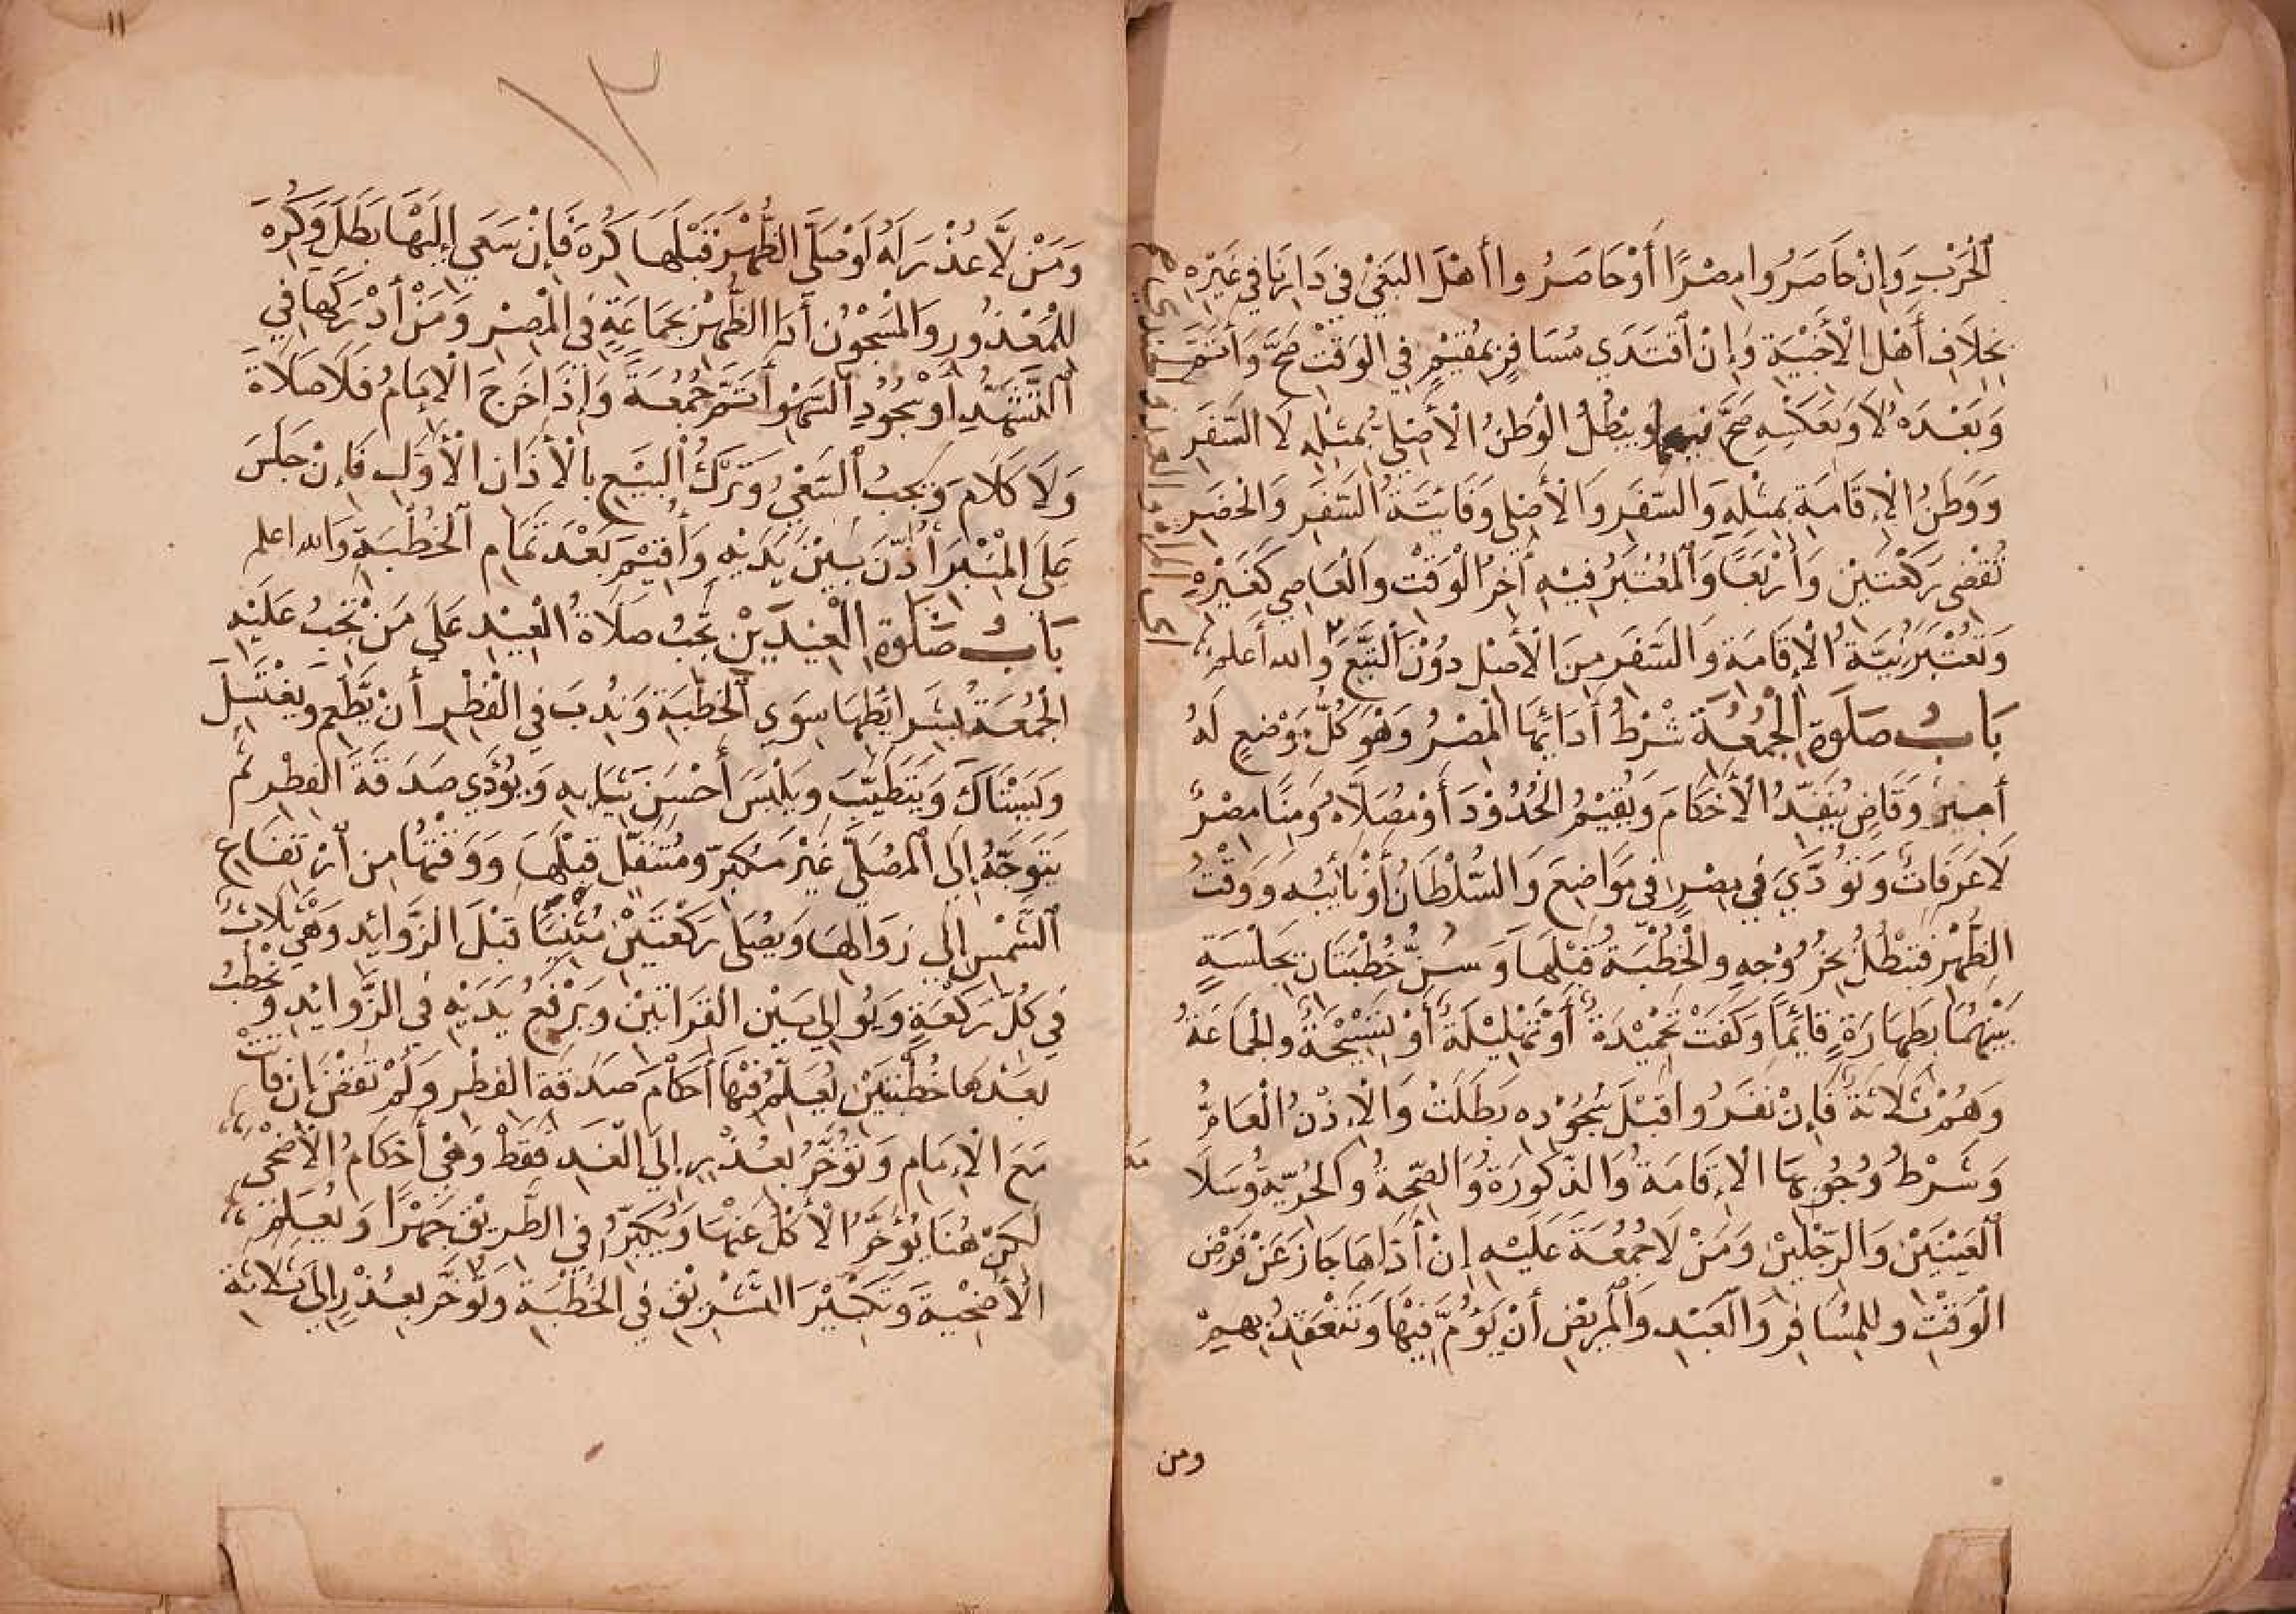 الْحَرْبِ وَإِنْ حَاصَرُوا مِصْرًا أَوْ حَاصَرُوا أَهْلَ الْبَغْيِ فِي دَارِنَا فِي غَيْرِهِ
بِخِلَافِ أَهْلِ الْأَخْبِيَةِ وَإِنْ اقْتَدَى مُسَافِرٌ بِمُقِيمٍ فِي الْوَقْتِ صَحَّ وَأَتَمَّ
وَبَعْدَهُ لَا وَبِعَكْسِهِ صَحَّ فيهما وَيَبْطُلُ الْوَطَنُ الْأَصْلِيُّ بِمِثْلِهِ لَا السَّفَرِ
وَوَطَنُ الْإِقَامَةِ بِمِثْلِهِ وَالسَّفَرِ وَالْأَصْلِيِّ وَفَائِتَةُ السَّفَرِ وَالْحَضَرِ
تُقْضَى رَكْعَتَيْنِ وَأَرْبَعًا وَالْمُعْتَبَرُ فِيهِ آخِرُ الْوَقْتِ وَالْعَاصِي كَغَيْرِهِ
وَتُعْتَبَرُ نِيَّةُ الْإِقَامَةِ وَالسَّفَرِ مِنَ الْأَصْلِ دُوْنَ التَّبَعِ وَالله أَعلم
بَابُ صَلَوةِ الْجُمُعَةِ شَرْطُ أَدَائِهَا الْمِصْرُ وَهْوَ كُلُّ مَوْضِعٍ لَهُ
أَمِيرٌ وَقَاضٍ يُنَفِّذُ الْأَحْكَامَ وَيُقِيْمُ الْحُدُوْدَ أَوْ مُصَلَّاهُ وَمِنًا مِصْرٌ
لَا عَرَفَاتٌ وَتُؤَدَّيَ فِي مِصْرٍ فِي مَوَاضِعَ وَالسُّلْطَانُ أَوْ نَائِبُه وَوَقْتُ
الظُّهْرِ فَتَبْطُلُ بِخُرُوْجِهِ وَالْخُطْبَةُ قَبْلَهَا وَسُنَّ خُطْبَتَانِ بِجَلْسَةٍ
بَيْنَهُمَا بِطَهَارَةٍ قَائِمًا وَكَفَتْ تَحْمِيْدَةٌ أَوْ تَهْلِيْلَةٌ أَوْ تَسْبِيْحَةٌ وَالْجَمَاعَةُ
وَهُمْ ثَلَاثَةٌ فَإِنْ نَفَرُوا قَبْلَ سُجُوْدِه بَطَلَتْ وَالْإِذْنُ الْعَامُّ
وَشَرْطُ وُجُوبِهَا الْإِقَامَةُ وَالذُّكُورَةُ وَالصِّحَّةُ وَالْحُرِّيَّةُ وَسَلَا
الْعَيْنَيْنِ وَالرِّجْلَيْنِ وَمَنْ لَا جُمُعَةَ عَلَيْهِ إِنْ أَدَّاهَا جَازَ عَنْ فَرْضِ
الْوَقْتِ وَلِلْمُسَافِرِ وَالْعَبْدِ وَالْمَرِيْضِ أَنْ يَؤُمَّ فِيْهَا وَتَنْعَقِدُ بِهِمْ
مة
ومن
١١
١٢
وَمَنْ لَا عُذْرَ لَهُ لَوْ صَلَّى الظُّهْرَ قَبْلَهَا كُرِهَ فَإِنْ سَعَى إِلَيْهَا بَطَلَ وَكُرِهَ
لِلْمَعْذُورِ وَالْمَسْجُوْنِ أَدَا الظُّهْرِ بِجَمَاعَةٍ فِي الْمِصْرِ وَمَنْ أَدْرَكَهَا فِي
التَّشَهُّدِ أَوْ سُجُوْدِ السَّهْوِ أَتَمَّ جُمُعَةً وَإِذَا خَرَجَ الْإِمَامُ فَلَا صَلَاةَ
وَلَا كَلَامَ وَيَجِبُ السَّعْيُ وَتَرْكُ الْبَيْعِ بِالْأَذَانِ الْأَوَّلِ فَإِنْ جَلَسَ
عَلَى الْمِنْبَرِ أُذِّنَ بَيْنَ يَدَيْهِ وَأُقِيْمَ بَعْدَ تَمَامِ الْخُطْبَةِ وَالله اعلم
بَابُ صَلَوةِ الْعِيْدَيْنِ تَجِبُ صَلَاةُ الْعِيْدِ عَلَى مَنْ تَجِبُ عَلَيْهِ
الْجُمُعَةُ بِشَرَائِطِهَا سِوَى الْخُطْبَةِ وَنُدِبَ فِي الْفِطْرِ أَنْ يَطْعَمَ وَيَغْتَسِلَ
وَيَسْتَاكَ وَيَتَطَيَّبَ وَيَلْبَسَ أَحْسَنَ ثِيَابِهِ وَيُؤَدِّي صَدَقَةَ الْفِطْرِ ثُمَّ
يَتَوَجَّهُ إِلَى الْمُصَلَّى غَيْرَ مُكَبِّرٍ وَمُتَنَفِّلٍ قَبْلَهَا وَوَقْتُهَا مِنِ ارْتِفَاعِ
الشَّمْسِ إِلَى زَوَالِهَا وَيُصَلِّي رَكْعَتَيْنِ مُثْنِيًا قَبْلَ الزَّوَائِدِ وَهْيَ ثَلَاثٌ
فِي كُلِّ رَكْعَةٍ وَيُوَالِي بَيْنَ الْقَرَاتَيْنِ وَيَرْفَعُ يَدَيْهِ فِي الزَّوَائِدِ وَيَخْطُبُ
بَعْدَهَا خُطْبَتَيْنِ يُعَلِّمُ فِيْهَا أَحْكَامَ صَدَقَةِ الْفِطْرِ وَلَمْ تُقْضَ إِنْ فَاتَتْ
مَعَ الْإِمَامِ وَتُؤَخَّرُ بِعُذْرٍ إِلَى الْغَدِ فَقَطْ وَهْيَ أَحْكَامُ الْأَضْحَى
لَكِنْ هُنَا يُؤَخَّرُ الْأَكْلُ عَنْهَا وَيُكَبِّرُ فِي الطَّرِيْقِ جَهْرًا وَيُعَلِّمُ
الْأُضْحِيَةَ وَتَكْبِيْرَ التَّشْرِيْقِ فِي الْخُطْبَةِ وَتُؤَخَّرُ بِعُذْرٍ إِلَى ثَلَاثَةِ